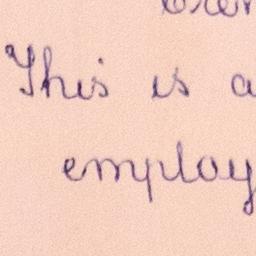 This is a
employ